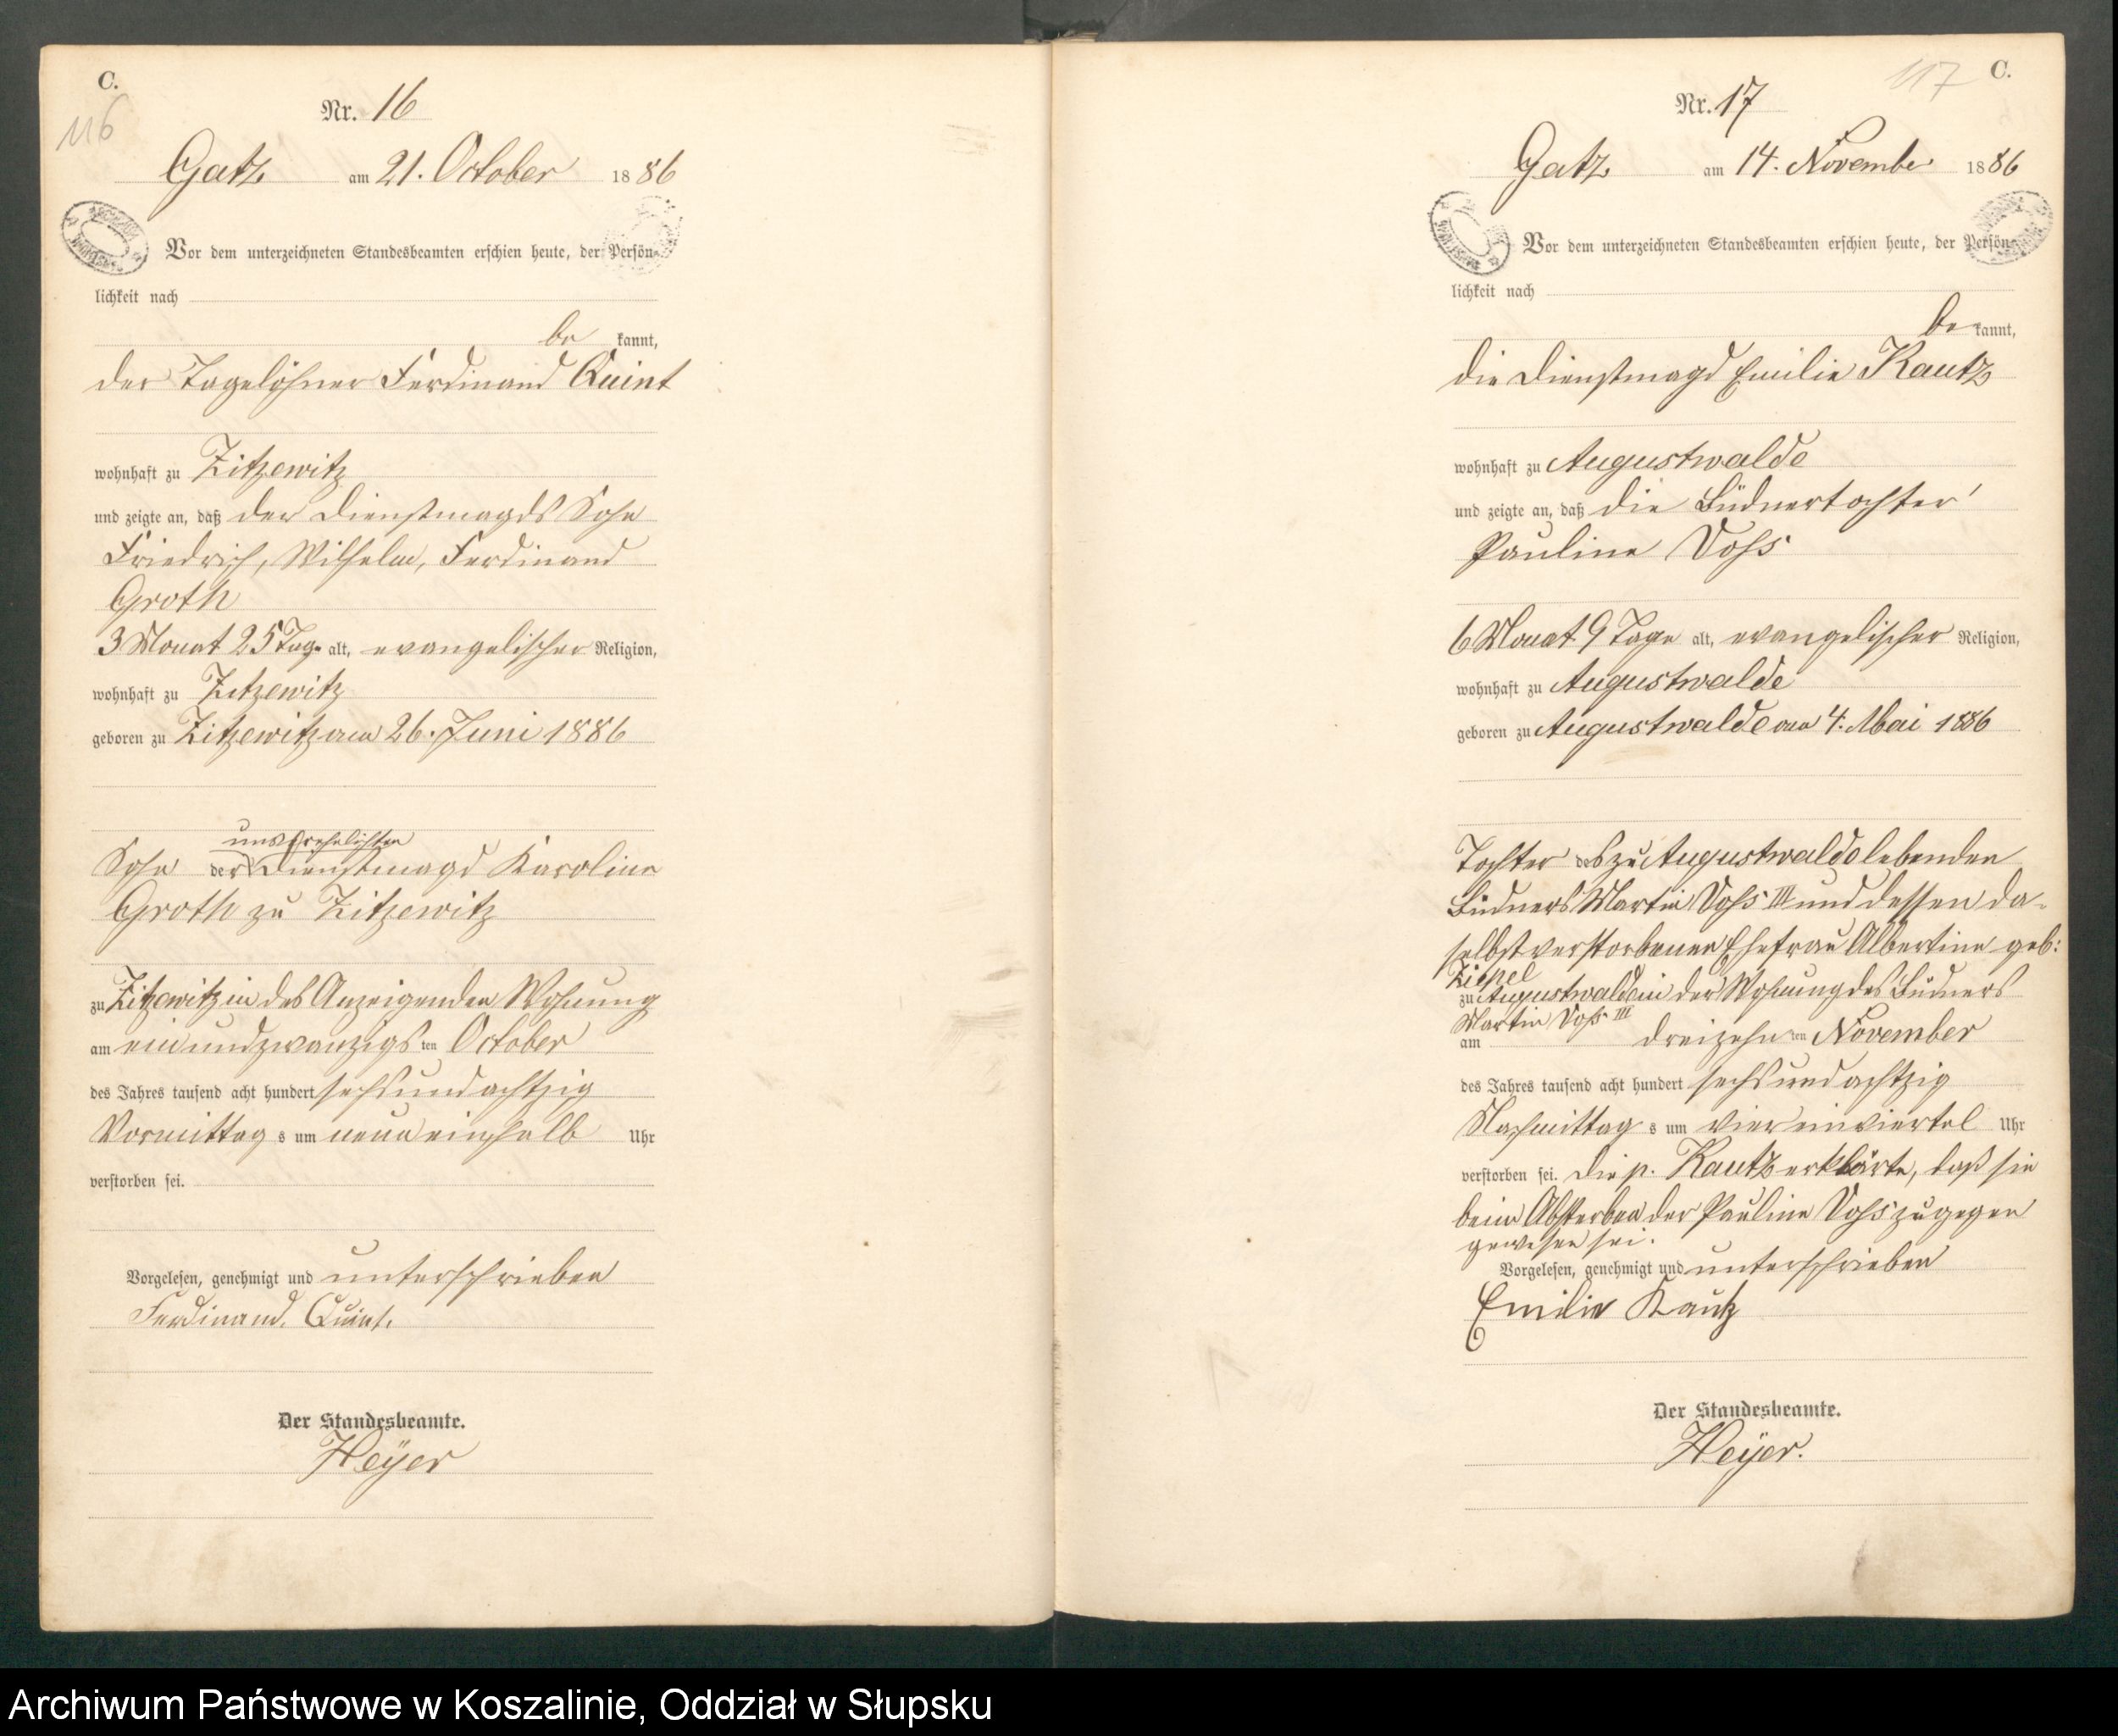 C.
116
Nr. 16
Gatz am 21. October 1886
Vor dem unterzeichneten Standesbeamten erschien heute, der Persön-
lichkeit nach
be kannt,
der Tagelöhner Ferdinand Quint
wohnhaft zu Zitzewitz
und zeigte an, daß der Dienstmagds Sohn
Friedrich, Wilhelm, Ferdinand
Groth
3 Monat 25 Tage alt, evangelischer Religion,
wohnhaft zu Zitzewitz
geboren zu Zitzewitz am 26. Juni 1886
unverehelichten
Sohn der Dienstmagd Karoline
Groth zu Zitzewitz
zu Zitzewitz in des Anzeigenden Wohnung
am einundzwanzigs ten October
des Jahres tausend acht hundert sechsundachtzig
Vormittag s um neuneinhalb Uhr
verstorben sei.
Vorgelesen, genehmigt und unterschrieben
Ferdinand Quint.
Der Standesbeamte.
Heÿer
117 C.
Nr. 17
Gatz am 14. November 1886
Vor dem unterzeichneten Standesbeamten erschien heute, der Persön-
lichkeit nach
be kannt,
die Dienstmagd Emilie Kautz
wohnhaft zu Augustwalde
und zeigte an, daß die Büdnertochter
Pauline Voſs
6 Monat 9 Tage alt, evangelischer Religion,
wohnhaft zu Augustwalde
geboren zu Augustwalde am 4. Mai 1886
Tochter des zu Augustwalde lebenden
Büdners Martin Voſs III und dessen da-
selbst verstorbenen Ehefrau Albertine geb:
Ziepel
zu Augustwalde in der Wohnung des Büdners
Martin Voſs III
am dreizehn ten November
des Jahres tausend acht hundert sechsundachtzig
Nachmittag s um viereinviertel Uhr
verstorben sei. Die p. Kautz erklärte, daß sie
beim Absterben der Pauline Voſs zugegen
gewesen sei.
Vorgelesen, genehmigt und unterschrieben
Emilie Kautz
Der Standesbeamte.
Heÿer.
Archiwum Państwowe w Koszalinie, Oddział w Słupsku